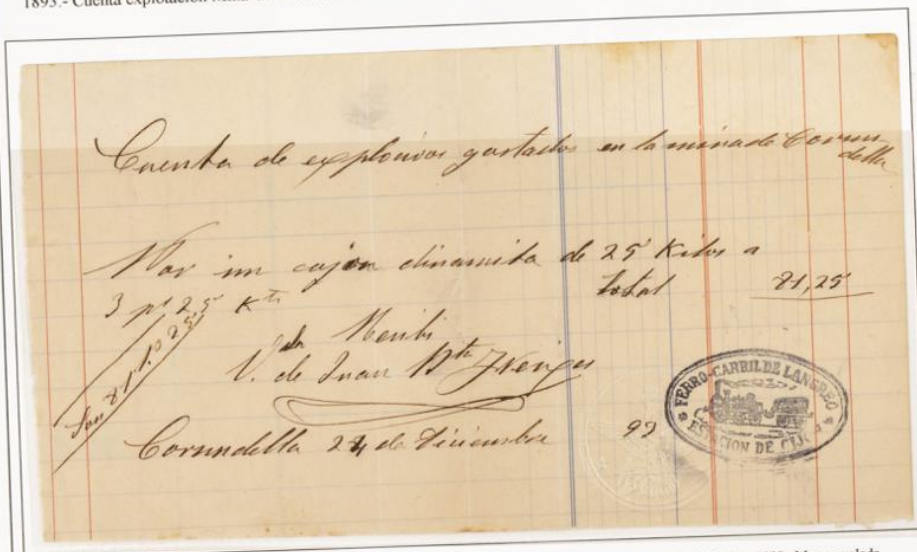 1893.- Cuenta explotación
Cuenta de explosivos gastados en la mina de Cornu
della
Por un cajon dinamita de 25 Kilos a
3 pts 25 Kto total 81,25
Son 81 pts 25
Recibi
V.da de Juan Bta
Cornudella 24 de Diciembre 92
FERRO-CARRIL DE LANGREO
ESTACION DE GIJON